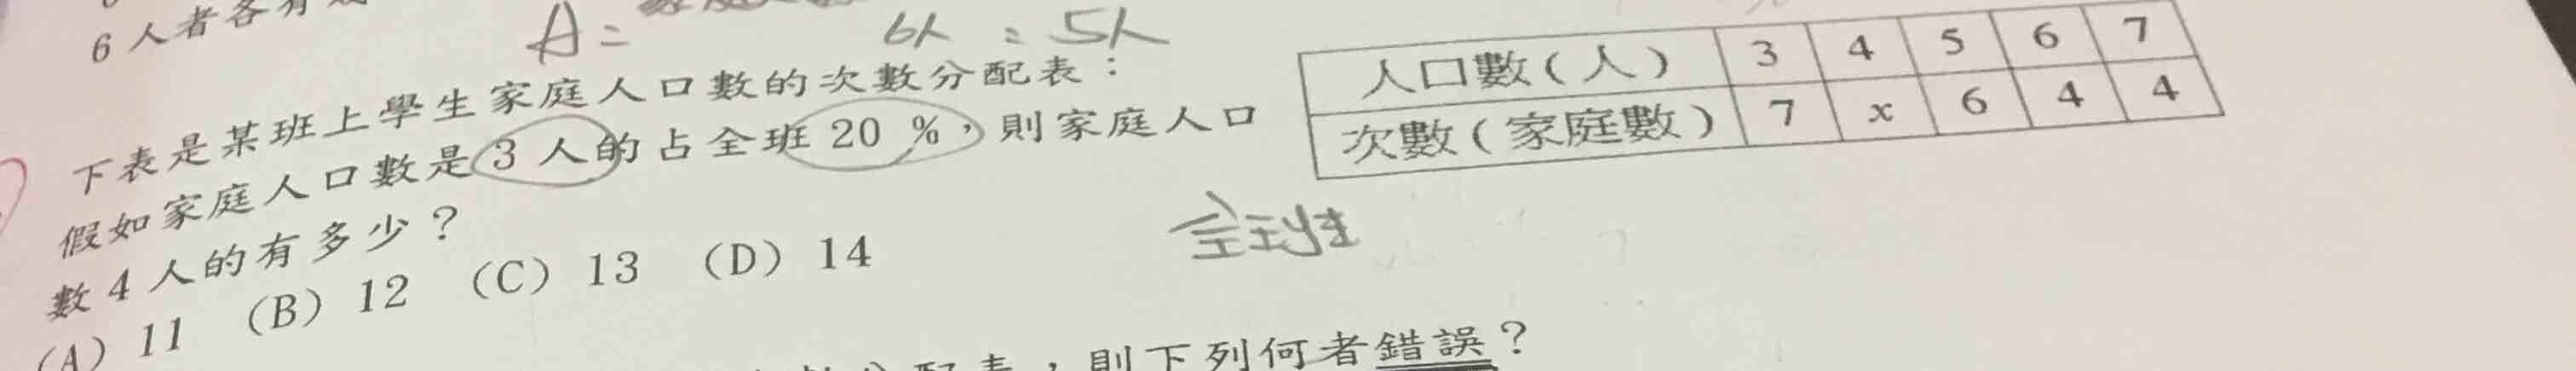 6人者各有
A=
6人 = 5人
下表是某班上學生家庭人口數的次數分配表：
假如家庭人口數是3人的占全班20%，則家庭人口
數4人的有多少？
(A) 11 (B) 12 (C) 13 (D) 14
人口數(人) 3 4 5 6 7
次數(家庭數) 7 x 6 4 4
全班
表，則下列何者錯誤？